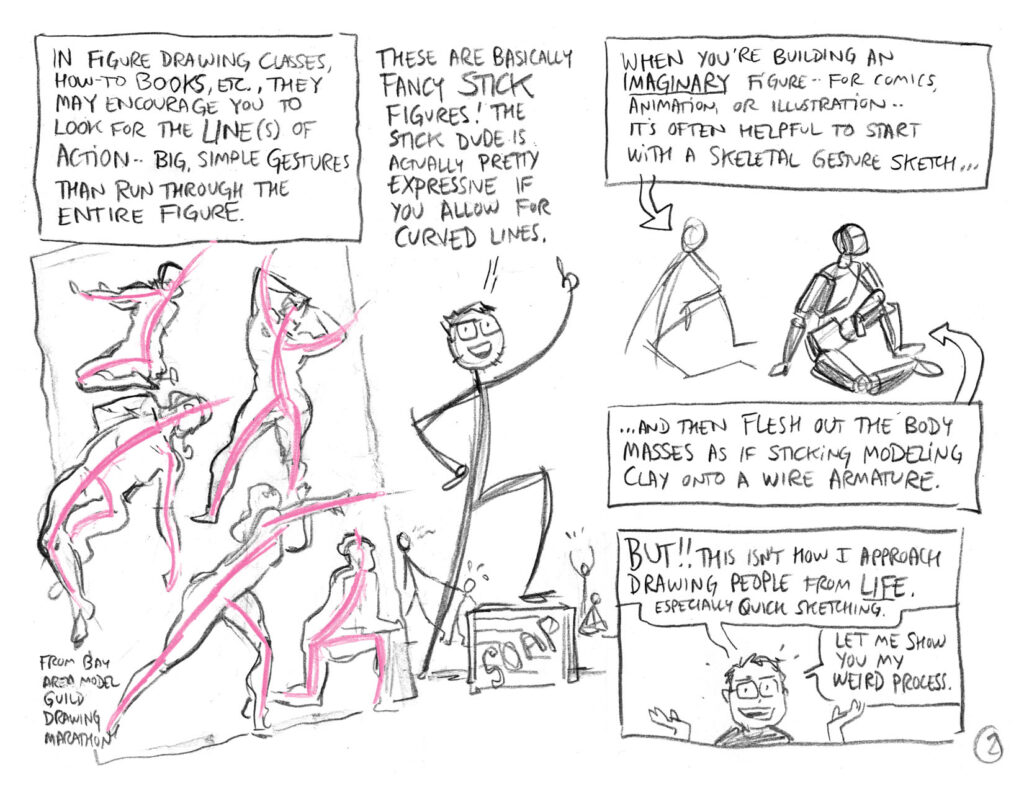 IN FIGURE DRAWING CLASSES,
HOW-TO BOOKS, ETC., THEY
MAY ENCOURAGE YOU TO
LOOK FOR THE LINE(S) OF
ACTION-- BIG, SIMPLE GESTURES
THAN RUN THROUGH THE
ENTIRE FIGURE.
THESE ARE BASICALLY
FANCY STICK
FIGURES! THE
STICK DUDE IS
ACTUALLY PRETTY
EXPRESSIVE IF
YOU ALLOW FOR
CURVED LINES.
WHEN YOU'RE BUILDING AN
IMAGINARY FIGURE-- FOR COMICS,
ANIMATION, OR ILLUSTRATION--
IT'S OFTEN HELPFUL TO START
WITH A SKELETAL GESTURE SKETCH...
...AND THEN FLESH OUT THE BODY
MASSES AS IF STICKING MODELING
CLAY ONTO A WIRE ARMATURE.
SOAP
FROM BAY
AREA MODEL
GUILD
DRAWING
MARATHON
BUT!! THIS ISN'T HOW I APPROACH
DRAWING PEOPLE FROM LIFE.
ESPECIALLY QUICK SKETCHING.
LET ME SHOW
YOU MY
WEIRD PROCESS.
2